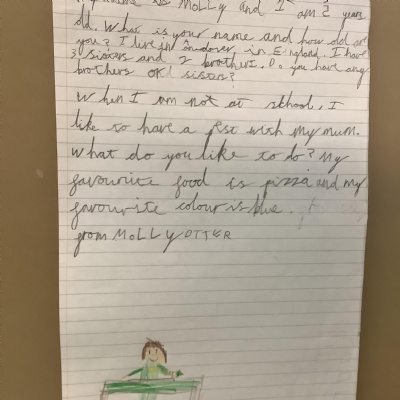 is MOLLY and I am 2 years
old. What is your name and how old are
you? I live in Andover in England. I have
3 sisters and 2 brothers. Do you have any
brothers or sisters?
When I am not at school, I
like to have a rest with my mum.
What do you like to do? My
favourite food is pizza and my
favourite colour is blue.
from MOLLY OTTER